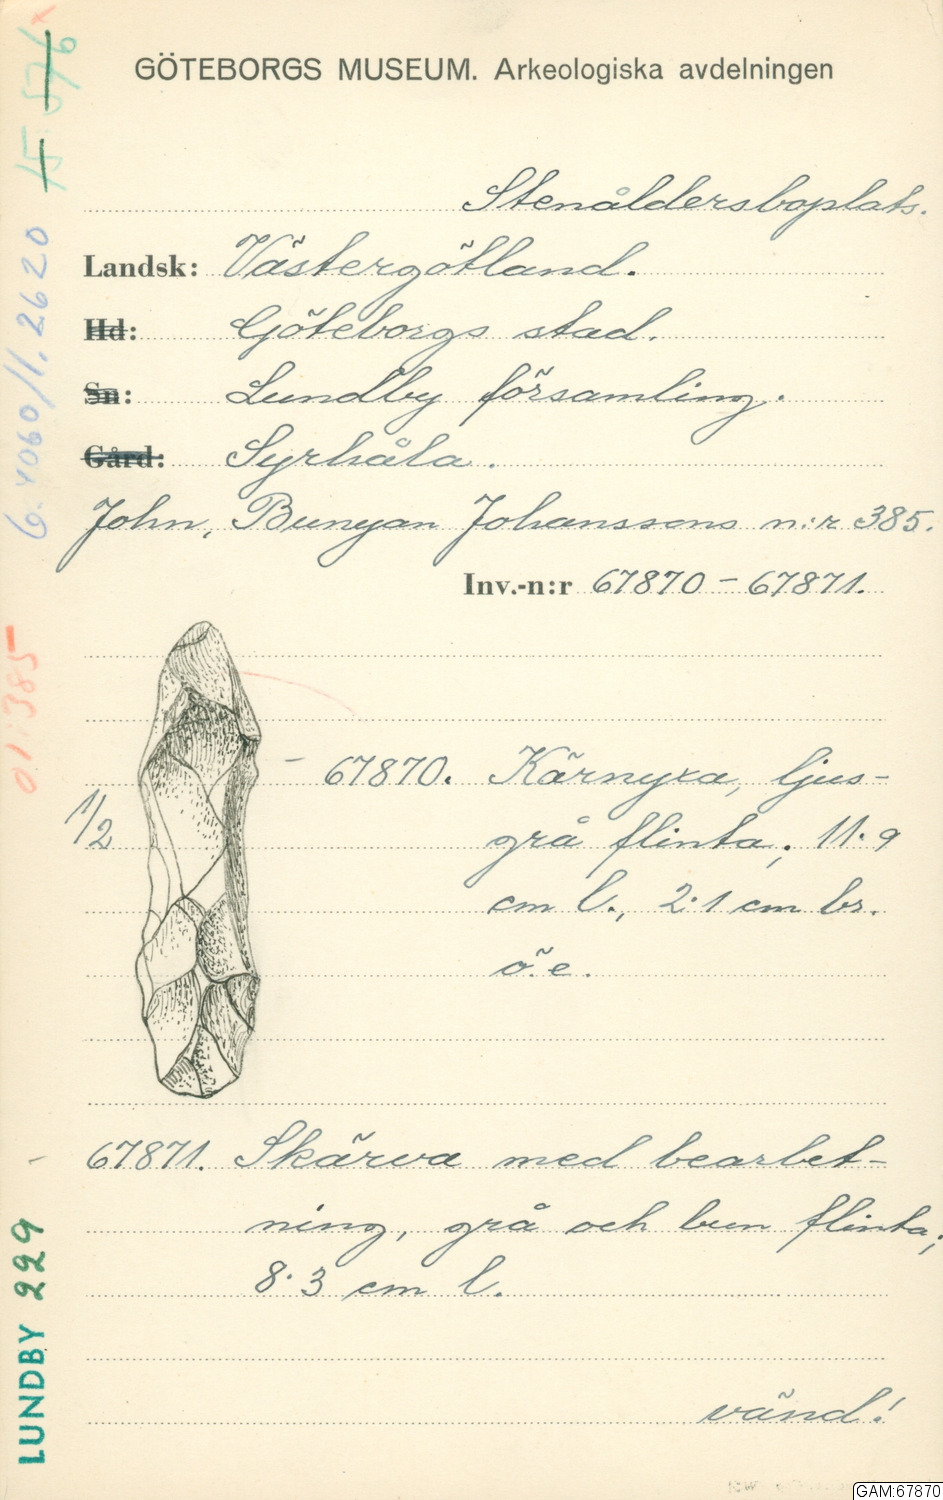 GÖTEBORGS MUSEUM. Arkeologiska avdelningen
Stenåldersboplats.
Landsk: Västergötland.
Hd: Göteborgs stad.
Sn: Lundby församling.
Gård: Syrhåla.
John, Bunyan Johanssons n:r 385.
Inv.-n:r 67870 - 67871.
1/2
67870. Kärnyxa, ljus-
grå flinta; 11·9
cm l., 2·1 cm br.
ö. e.
67871. Skärva med bearbet-
ning, grå och brun flinta;
8·3 cm l.
vänd!
15:576
G. 4060/1. 2620
01:385
LUNDBY 229
GAM:67870